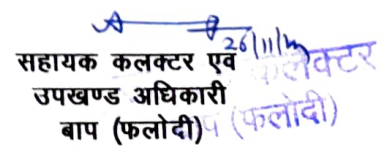 26/11/
सहायक कलक्टर एवं
उपखण्ड अधिकारी
बाप (फलोदी)
लेक्टर
(फलोदी)